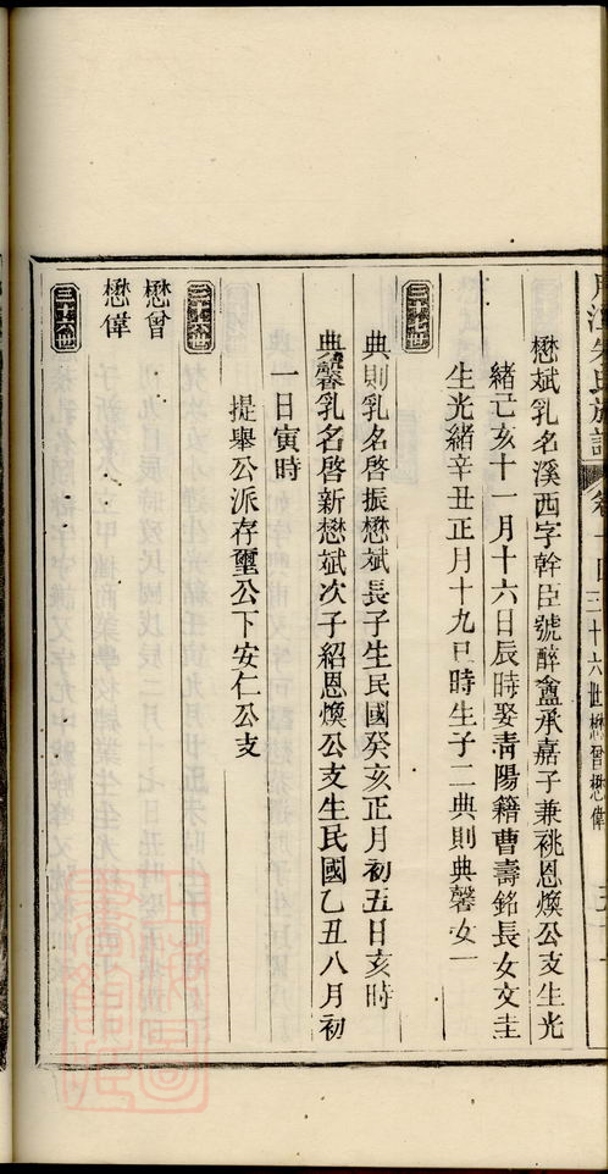 朱氏族譜
卷十四 三十六世懋曾懋偉
懋斌乳名溪西字幹臣號醉盦承嘉子兼祧恩煥公支生光
緒己亥十一月十六日辰時娶青陽籍曹壽銘長女文圭
生光緒辛丑正月十九巳時生子二典則典馨女一
三十七世
典則乳名啓振懋斌長子生民國癸亥正月初五日亥時
典馨乳名啓新懋斌次子紹恩煥公支生民國乙丑八月初
一日寅時
提舉公派存璽公下安仁公支
三十六世
懋曾
懋偉
三十六世